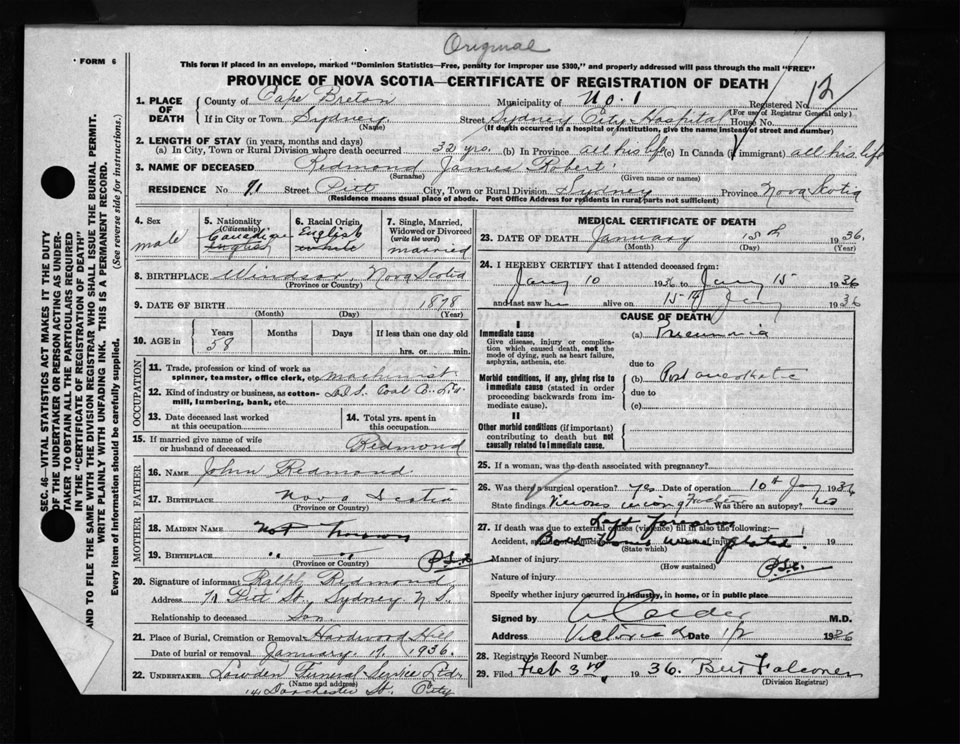 Original
FORM 6
This form if placed in an envelope, marked "Dominion Statistics—Free, penalty for improper use $300," and properly addressed will pass through the mail "FREE"
PROVINCE OF NOVA SCOTIA—CERTIFICATE OF REGISTRATION OF DEATH
12
1. PLACE OF DEATH
County of Cape Breton Municipality of No. 1 Registered No.
(For use of Registrar General only)
If in City or Town Sydney Street Sydney City Hospital House No.
(Name) (If death occurred in a hospital or institution, give the name instead of street and number)
2. LENGTH OF STAY (in years, months and days)
(a) In City, Town or Rural Division where death occurred 32 yrs. (b) In Province all his life (c) In Canada (if immigrant) all his life
3. NAME OF DECEASED Redmond James Robert
(Surname) (Given name or names)
RESIDENCE No 71 Street Pitt City, Town or Rural Division Sydney Province Nova Scotia
(Residence means usual place of abode. Post Office Address for residents in rural parts not sufficient)
4. Sex
male
5. Nationality
(Citizenship)
Canadian
English
6. Racial Origin
English
white
7. Single, Married, Widowed or Divorced
(write the word)
married
8. BIRTHPLACE Windsor, Nova Scotia
(Province or Country)
9. DATE OF BIRTH 1878
(Month) (Day) (Year)
10. AGE in
Years Months Days If less than one day old
58 hrs. or min.
OCCUPATION
11. Trade, profession or kind of work as spinner, teamster, office clerk, etc. machinist
12. Kind of industry or business, as cotton-mill, lumbering, bank, etc. Coal Co. Ltd
13. Date deceased last worked at this occupation
14. Total yrs. spent in this occupation
15. If married give name of wife or husband of deceased Redmond
FATHER
16. NAME John Redmond
17. BIRTHPLACE Nova Scotia
MOTHER
18. MAIDEN NAME Not Known
19. BIRTHPLACE " "
(Province or Country)
20. Signature of informant Ralph Redmond
Address 71 Pitt St., Sydney N.S.
Relationship to deceased Son
21. Place of Burial, Cremation or Removal Hardwood Hill
Date of burial or removal January 17, 1936.
22. UNDERTAKER Lowden Funeral Service Ltd.
(Name and address)
141 Dorchester St. City
MEDICAL CERTIFICATE OF DEATH
23. DATE OF DEATH January 15th 1936.
(Month) (Day)
24. I HEREBY CERTIFY that I attended deceased from:
Jany 10 1936 to Jany 15 1936
and last saw him alive on 15th Jany 1936
CAUSE OF DEATH
I
Immediate cause
Give disease, injury or complication which caused death, not the mode of dying, such as heart failure, asphyxia, asthenia, etc.
(a) Pneumonia
due to
Morbid conditions, if any, giving rise to immediate cause (stated in order proceeding backwards from immediate cause).
(b) Post
due to
(c)
II
Other morbid conditions (if important) contributing to death but not causally related to immediate cause.
25. If a woman, was the death associated with pregnancy?
26. Was there a surgical operation? Yes Date of operation 10th Jany 1936
State findings Was there an autopsy? No
27. If death was due to external causes (violence) fill in also the following:
Accident, suicide or homicide Date of injury 19
(State which)
Manner of injury
(How sustained)
Nature of injury
Specify whether injury occurred in industry, in home, or in public place
Signed by Calder M.D.
Address Victoria Rd Date 1/2 1936
28. Registrar's Record Number
29. Filed Feb 3rd, 1936. Bert Falconer
(Division Registrar)
SEC. 46—VITAL STATISTICS ACT MAKES IT THE DUTY
OF THE UNDERTAKER OR PERSON ACTING AS UNDER-
TAKER TO OBTAIN ALL THE PARTICULARS REQUIRED
IN THE "CERTIFICATE OF REGISTRATION OF DEATH"
AND TO FILE THE SAME WITH THE DIVISION REGISTRAR WHO SHALL ISSUE THE BURIAL PERMIT.
WRITE PLAINLY WITH UNFADING INK. THIS IS A PERMANENT RECORD.
Every item of information should be carefully supplied. (See reverse side for instructions.)